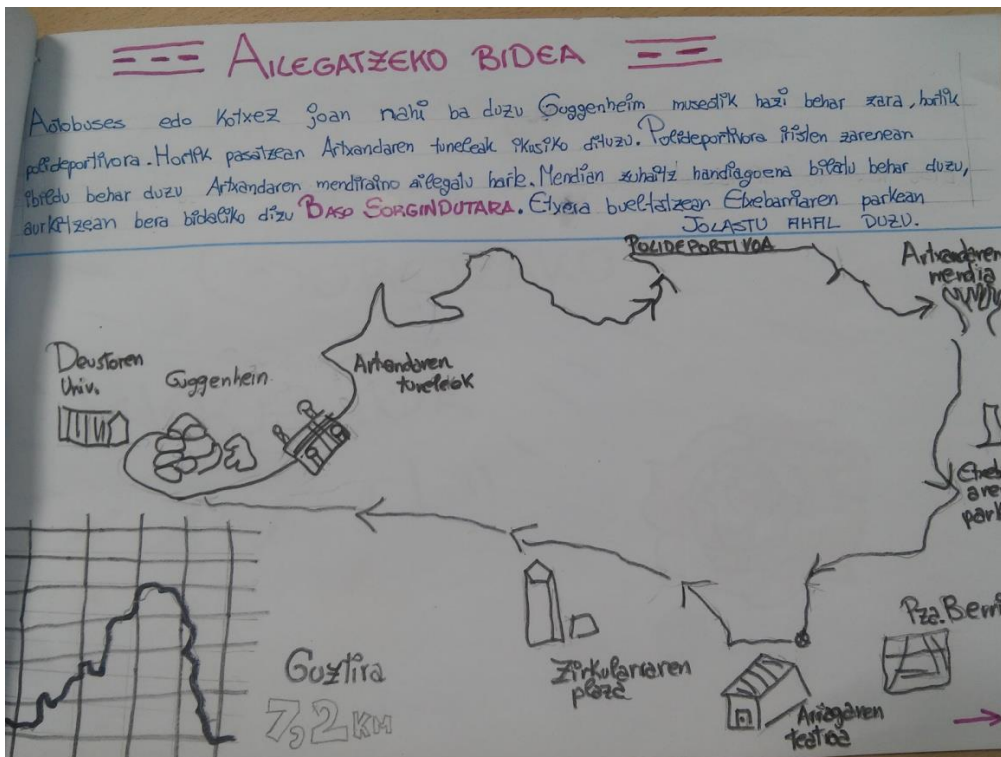 AILEGATZEKO BIDEA
Autobuses edo Kotxez joan nahi ba duzu Guggenheim museotik hazi behar zara, hortik
polideportivora. Hortik pasatzean Artxandaren tuneleak ikusiko dituzu. Polideportivora iristen zarenean
ibiledu behar duzu Artxandaren menditaino ailegatu harte. Mendian zuhaitz handiagoena bilatu behar duzu,
aurkitzean bera bidaliko dizu BASO SORGINDUTARA. Etxera bueltatzean Etxebarriaren parkean
JOLASTU AHAL DUZU.
POLIDEPORTIVOA
Artxandaren
mendia
Deustoren
Univ.
Guggenhein
Artxandaren
tuneleak
Etxeb
aren
park
Pza. Berri
Zirkularraren
plaza
Guztira
7,2 KM
Arriagaren
teatroa